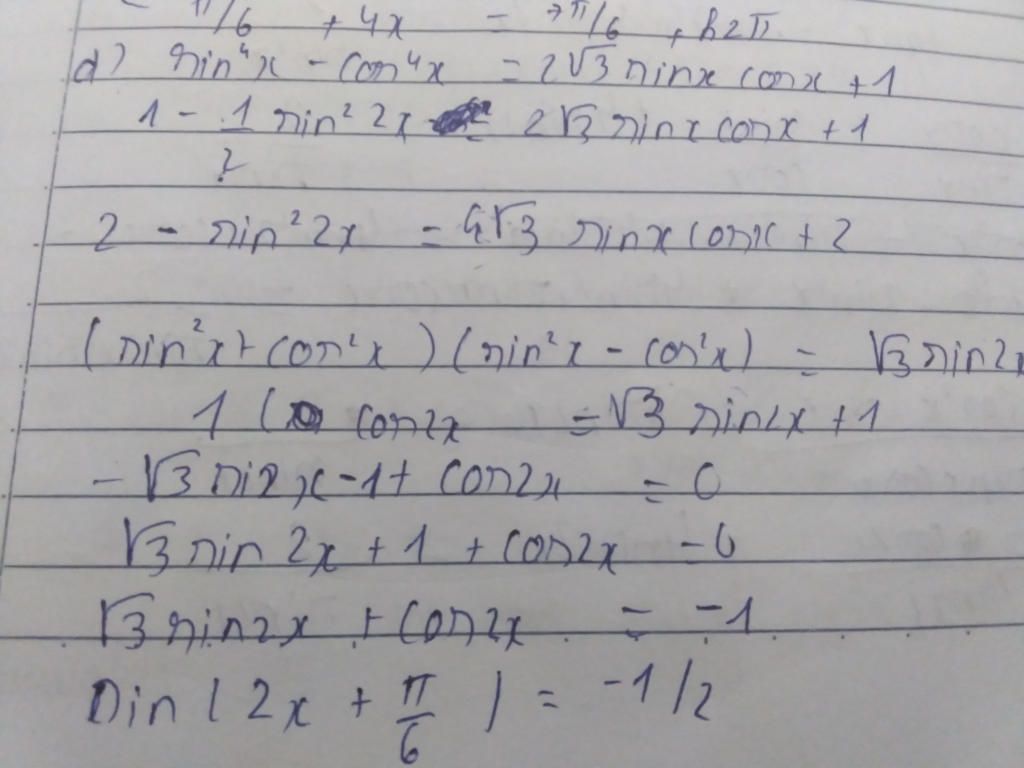 π/6 + 4x = 7π/6 + k2π
d) sin⁴x - cos⁴x = 2√3 sinx cosx + 1
1 - 1/2 sin² 2x = 2√3 sinx cosx + 1
2 - sin² 2x = 4√3 sinx cosx + 2
(sin²x + cos²x) (sin²x - cos²x) = √3 sin2x
1 ( cos2x = √3 sin2x + 1
- √3 sin2x - 1 + cos2x = 0
√3 sin 2x + 1 + cos2x = 0
√3 sin2x + cos2x = -1
sin ( 2x + π/6 ) = -1/2